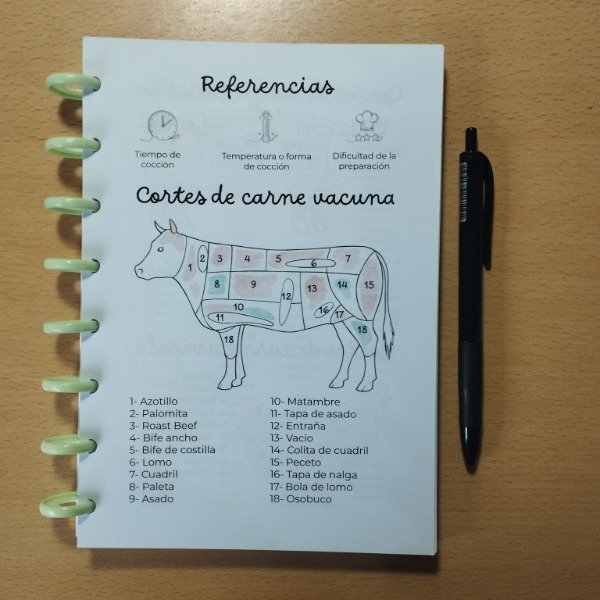 Referencias
Tiempo de
cocción
Temperatura o forma
de cocción
Dificultad de la
preparación
Cortes de carne vacuna
1 2 3 4 5 6 7
8 9 10 11 12 13 14 15
16 17 18 18
1- Azotillo
2- Palomita
3- Roast Beef
4- Bife ancho
5- Bife de costilla
6- Lomo
7- Cuadril
8- Paleta
9- Asado
10- Matambre
11- Tapa de asado
12- Entraña
13- Vacio
14- Colita de cuadril
15- Peceto
16- Tapa de nalga
17- Bola de lomo
18- Osobuco